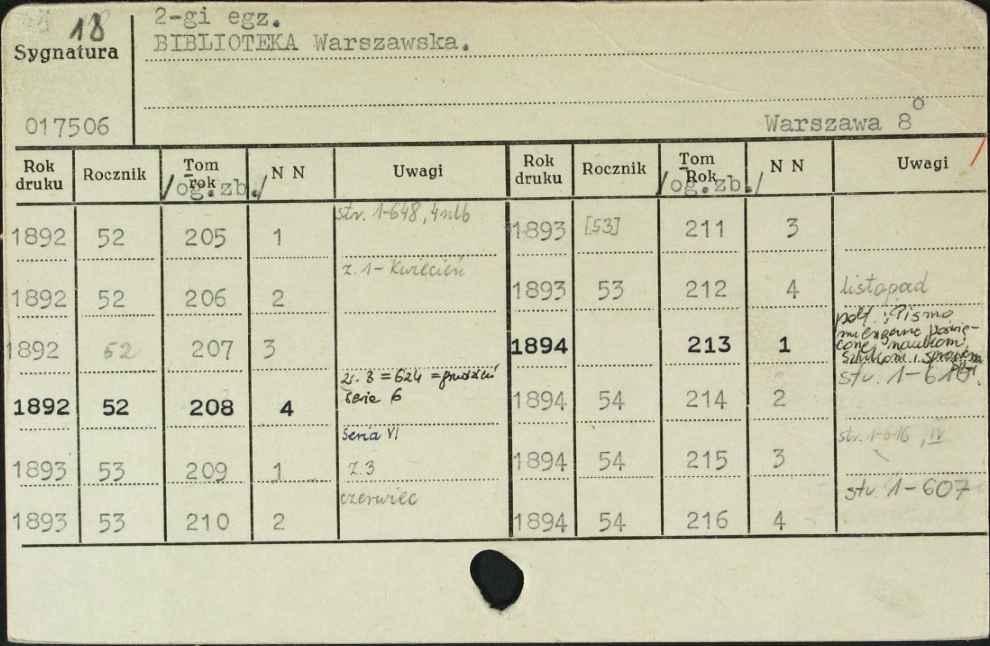 18
2-gi egz.
Sygnatura
BIBLIOTEKA Warszawska.
017506
Warszawa 8°
Rok druku Rocznik Tom rok /og.zb./ N N Uwagi
1892 52 205 1 str. 1-648, 4 nlb
1892 52 206 2 z. 1 - Kwiecień
1892 52 207 3
1892 52 208 4 z. 3 = 624 = grudzień
Seria 6
1893 53 209 1 Seria VI
z. 3
1893 53 210 2 czerwiec
Rok druku Rocznik Tom Rok /og.zb./ N N Uwagi
1893 [53] 211 3
1893 53 212 4 listopad
1894 213 1 podt.: Pismo
miesięczne poświę-
cone naukom,
sztukom i sprawom
1894 54 214 2 str. 1-610
1894 54 215 3 str. 1-616, IV
1894 54 216 4 str. 1-607